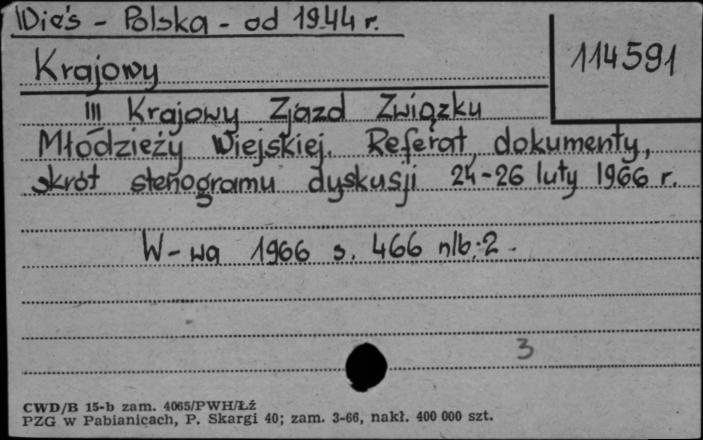 Wieś - Polska - od 1944 r.
114591
Krajowy
III Krajowy Zjazd Związku
Młodzieży Wiejskiej. Referat, dokumenty,
skrót stenogramu dyskusji 24-26 luty 1966 r.
W-wa 1966 s. 466 nlb. 2.
3
CWD/B 15-b zam. 4065/PWH/Łź
PZG w Pabianicach, P. Skargi 40; zam. 3-66, nakł. 400 000 szt.